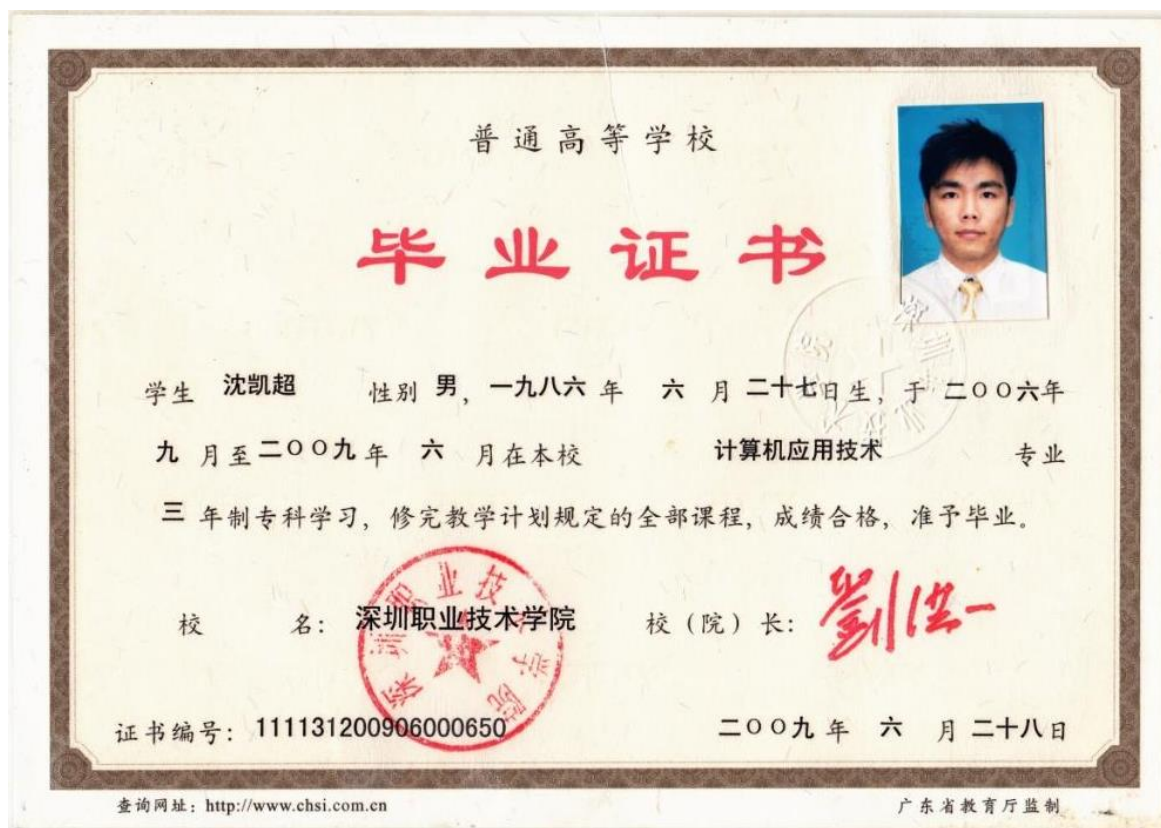 普通高等学校
毕业证书
学生 沈凯超 性别 男，一九八六 年 六 月 二十七日生，于 二〇〇六年
九 月至二〇〇九年 六 月在本校 计算机应用技术 专业
三 年制专科学习，修完教学计划规定的全部课程，成绩合格，准予毕业。
校 名：深圳职业技术学院 校（院）长：劉洪一
深圳职业技术学院
证书编号：111131200906000650 二〇〇九年 六 月 二十八日
查询网址：http://www.chsi.com.cn 广东省教育厅监制